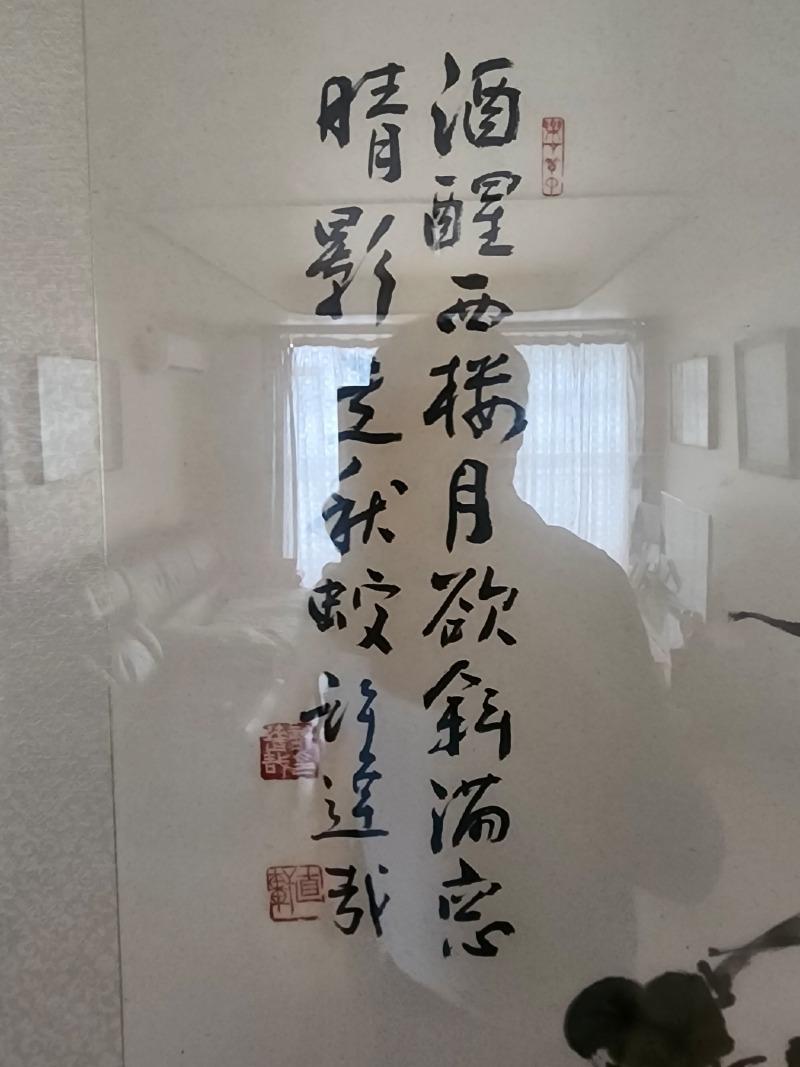 酒醒西樓月欲斜滿窓
晴影走秋蛟許達哉